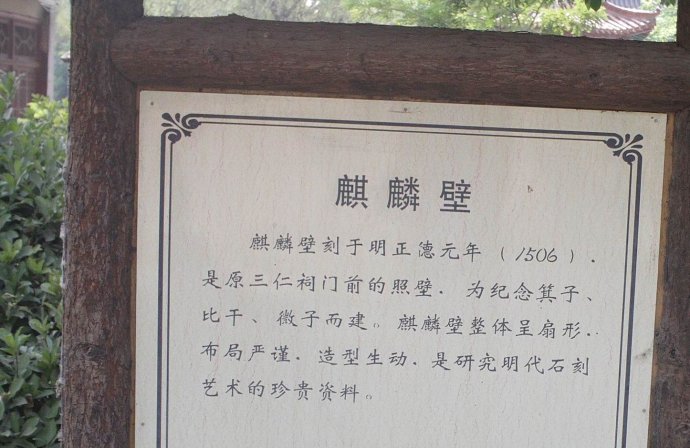 麒麟壁
麒麟壁刻于明正德元年（1506）.
是原三仁祠门前的照壁. 为纪念箕子、
比干、微子而建。麒麟壁整体呈扇形.
布局严谨. 造型生动. 是研究明代石刻
艺术的珍贵资料。